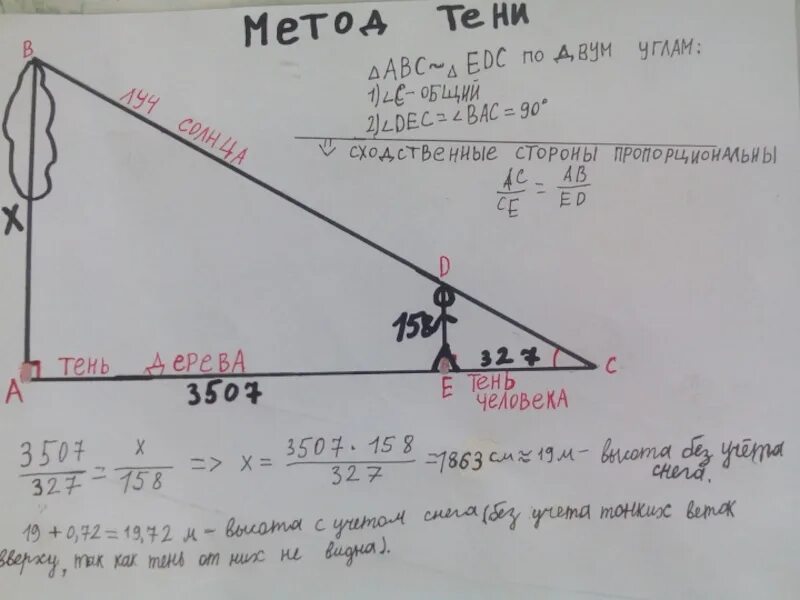 МЕТОД ТЕНИ
△ABC~△EDC ПО ДВУМ УГЛАМ:
1)∠C-ОБЩИЙ
2)∠DEC=∠BAC=90°
⇓ СХОДСТВЕННЫЕ СТОРОНЫ ПРОПОРЦИОНАЛЬНЫ
AC/CE = AB/ED
B
ЛУЧ СОЛНЦА
X
D
158
A
ТЕНЬ ДЕРЕВА
3507
E
327
C
ТЕНЬ
ЧЕЛОВЕКА
3507/327 = x/158 => x = 3507·158/327 =1863 см ≈ 19 м - высота без учёта
снега.
19 + 0,72 = 19,72 м - высота с учетом снега (без учета тонких веток
вверху, так как тень от них не видна).